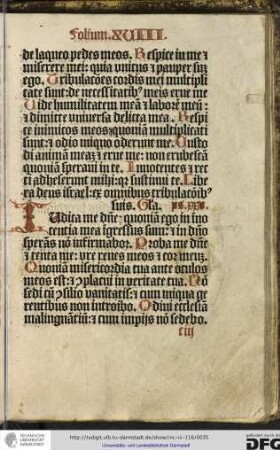 Folium. XVIII.
de laqueo pedes meos. Respice in me &
miserere mei: quia unicus & pauper sum
ego. Tribulacões cordis mei multipli
cate sunt: de necessitatib' meis erue me
Uide humilitatem meã & laborẽ meũ:
& dimitte universa delicta mea. Respi
ce inimicos meos quoniã multiplicati
sunt: & odio iniquo oderunt me. Custo
di animã meaz & erue me: non erubescã
quoniã speraui in te. Innocentes & re
cti adheserunt mihi: qz sustinui te. Libe
ra deus israel: ex omnibus tribulacõib'
suis. Gla. ps.
IUdica me dñe: quoniã ego in ino
centia mea igressus sum: & in dño
sperãs nõ infirmabor. Proba me dñe
& tenta me: vre renes meos & cor meuz.
Quoniã misericordia tua ante oculos
meos est: & cplacui in veritate tua. Nõ
sedi cũ csilio vanitatis: & cum iniqua ge
rentibus non introibo. Odiui ecclesiã
malignanciũ: & cum impijs nõ sedebo.
ciij
http://tudigit.ulb.tu-darmstadt.de/show/inc-iv-116/0035
Universitäts- und Landesbibliothek Darmstadt
TECHNISCHE
UNIVERSITÄT
DARMSTADT
gefördert durch die
DFG